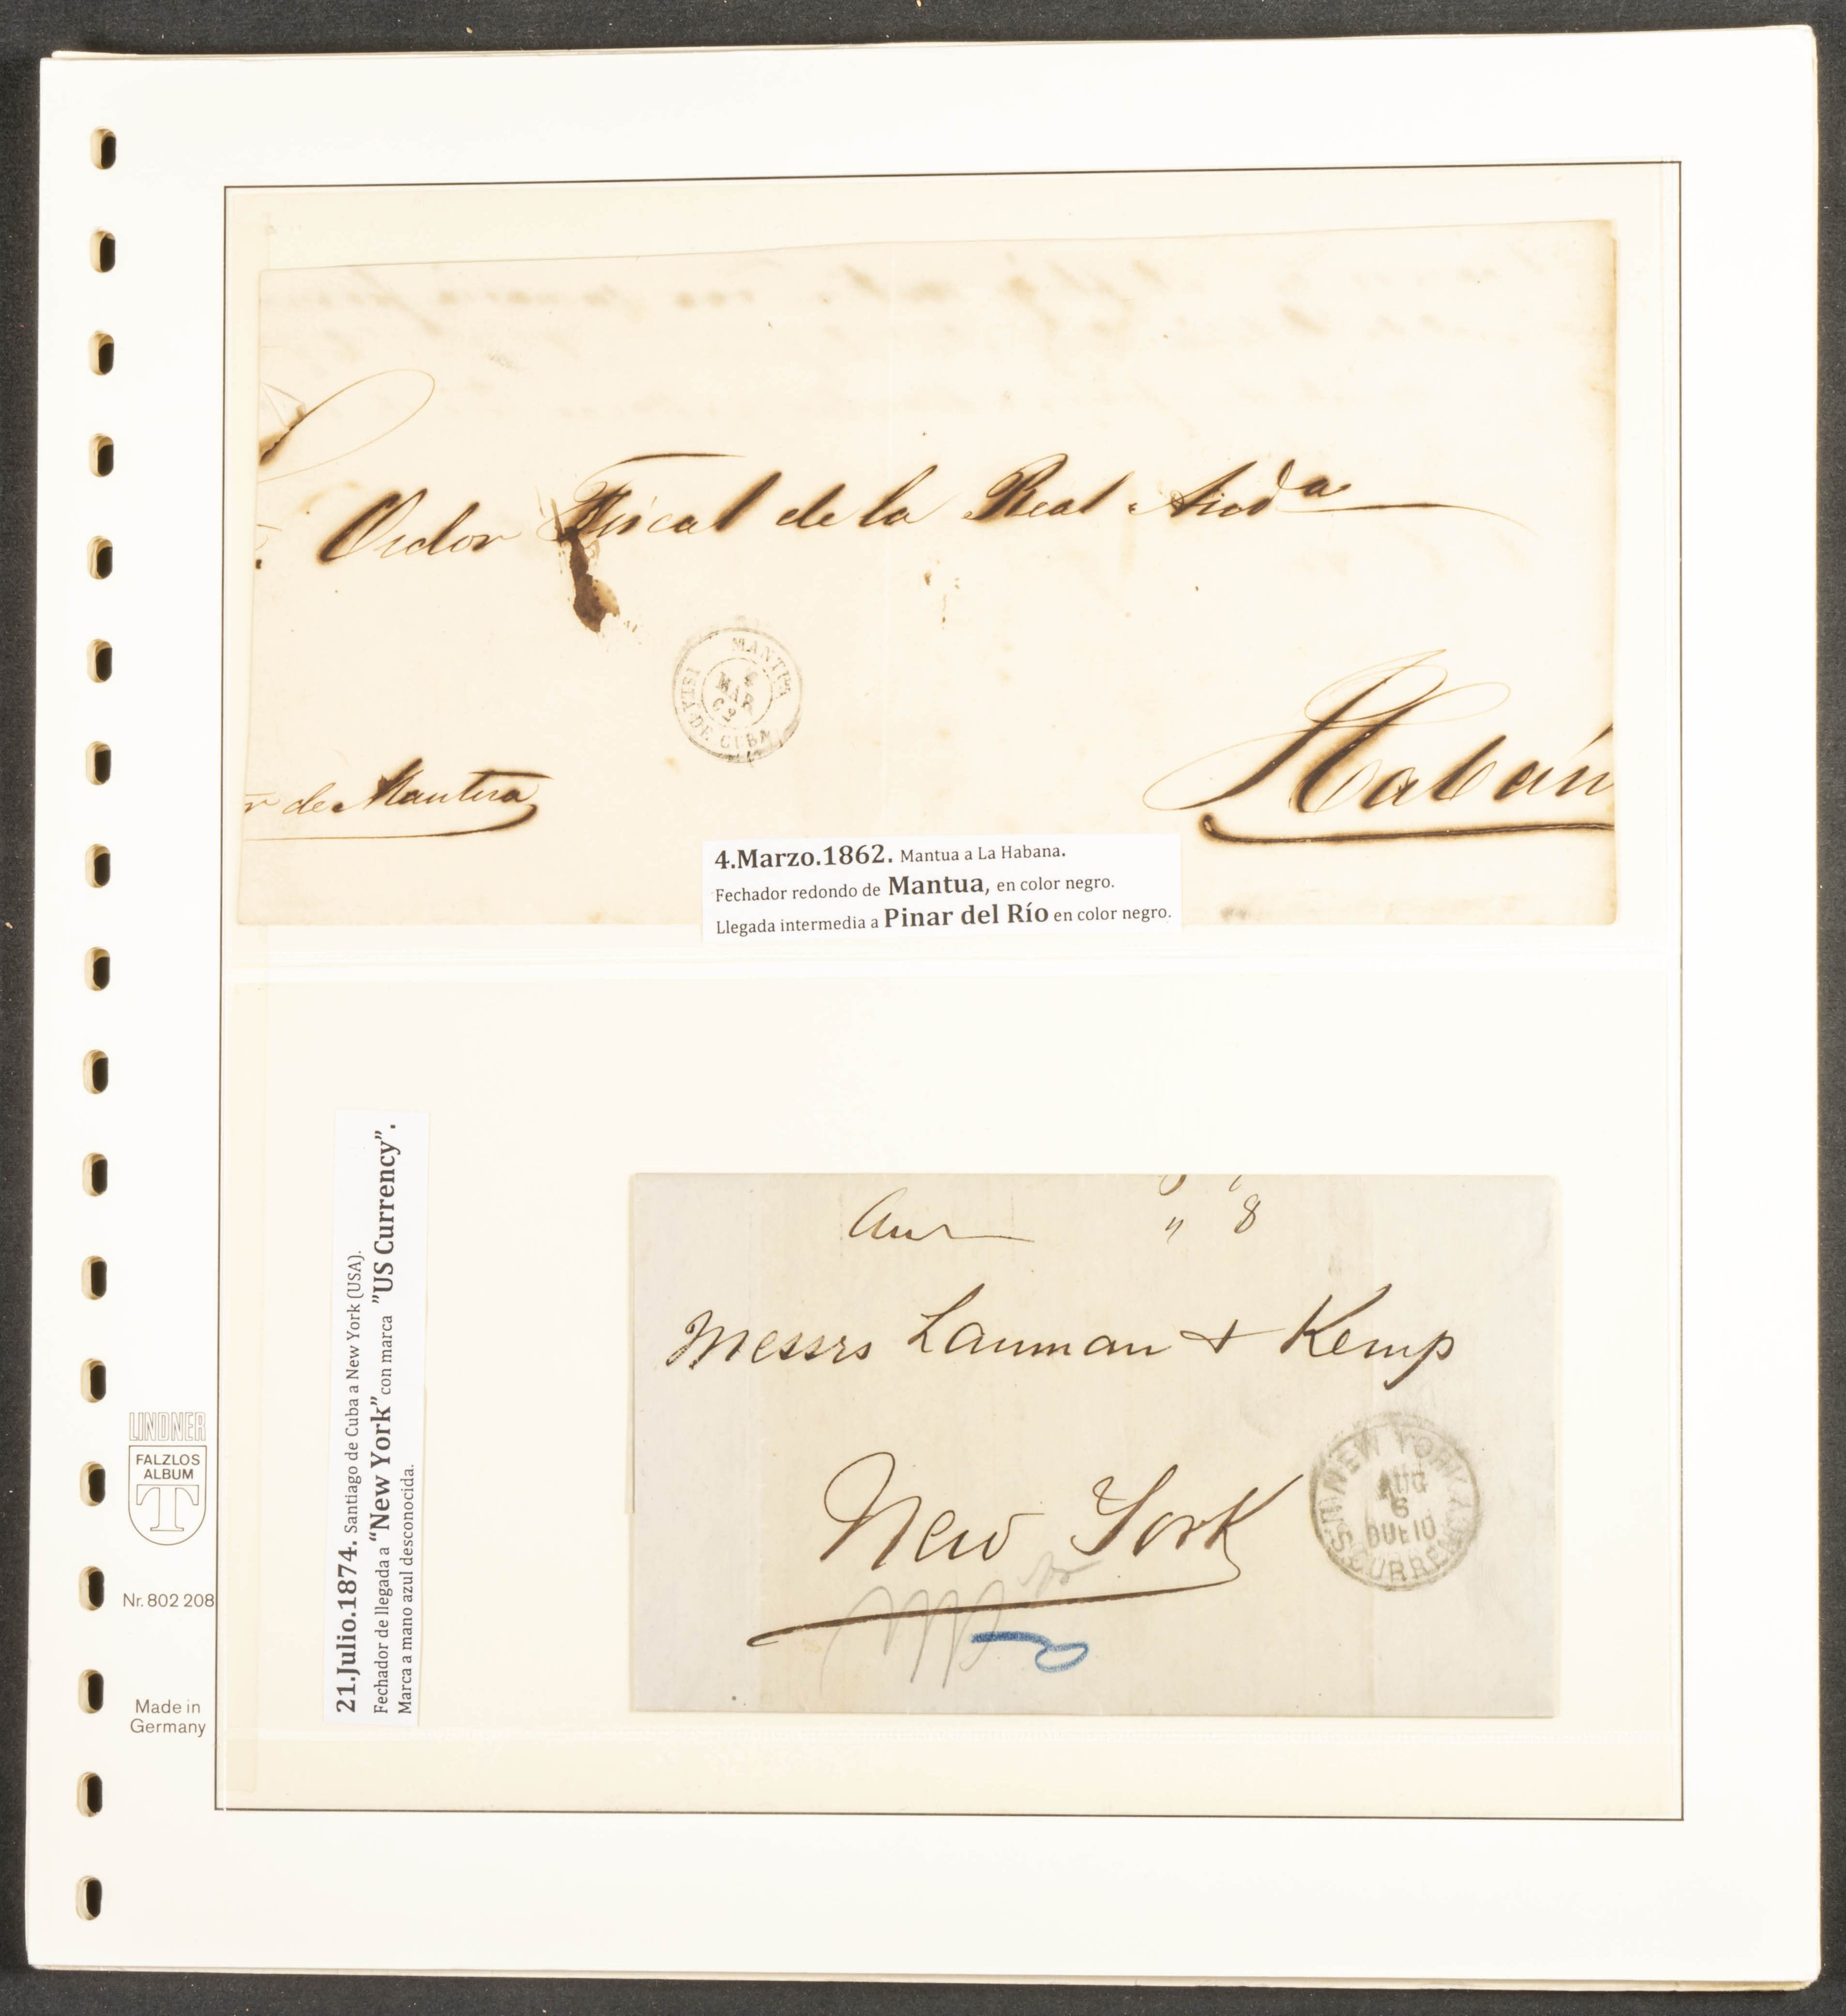 Oidor Fiscal de la Real Aud.a
MANTUA
4
MAR
62
ISLA DE CUBA
r de Mantua
Haban
4.Marzo.1862. Mantua a La Habana.
Fechador redondo de Mantua, en color negro.
Llegada intermedia a Pinar del Río en color negro.
21.Julio.1874. Santiago de Cuba a New York (USA).
Fechador de llegada a “New York” con marca ”US Currency”.
Marca a mano azul desconocida.
" 8
Messrs Lanman + Kemp
New York
NEW YORK
AUG
6
DUE 10
U.S. CURRENCY
LINDNER
FALZLOS
ALBUM
T
Nr. 802 208
Made in
Germany